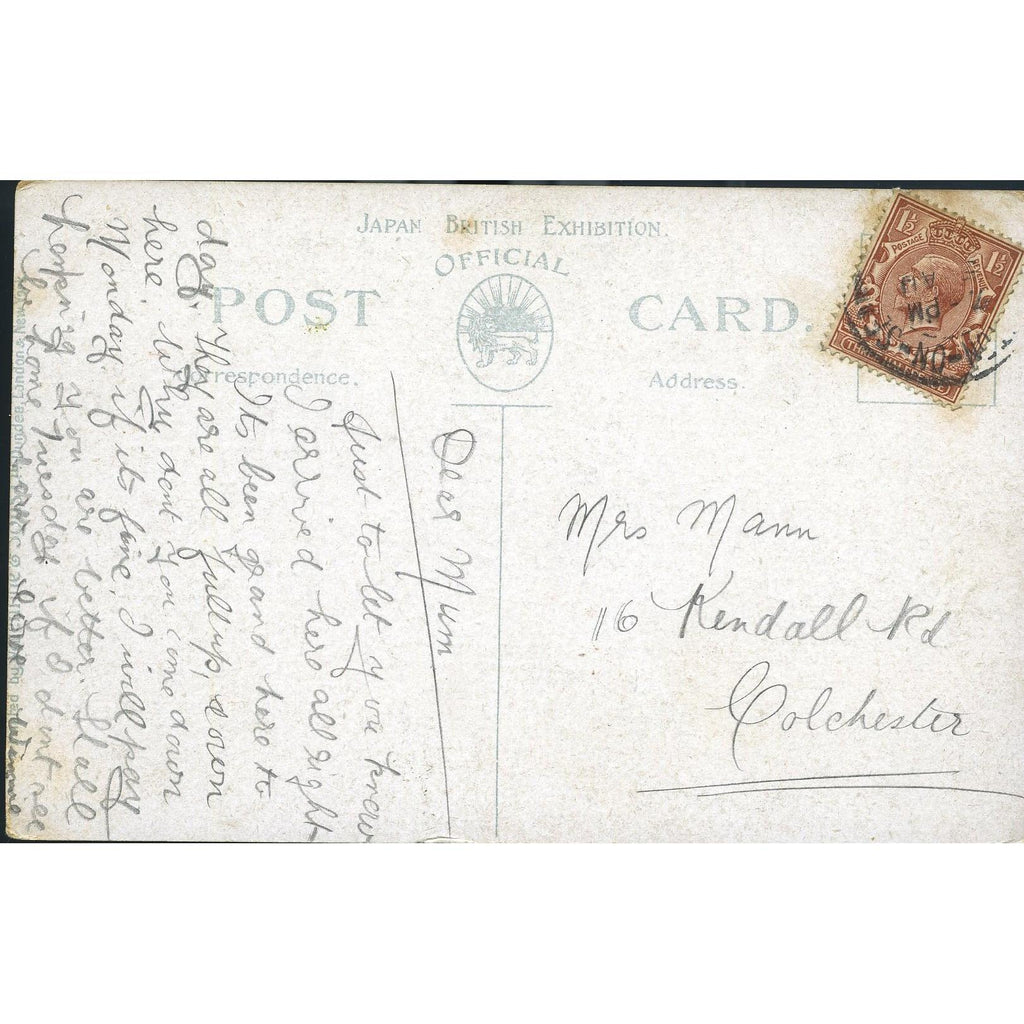 JAPAN BRITISH EXHIBITION.
OFFICIAL
POST CARD.
Correspondence.
Address.
1½ POSTAGE REVENUE 1½
PM
Dear Mum
Just to let you know
I arrived here allright
Its been grand here to
day. They are all full up, down
here. Why dont you come down
Monday, if its fine, I will pay
hopeing you are better. Shall
be home Tuesday if I dont see
Mrs Mann
116 Kendall Rd
Colchester